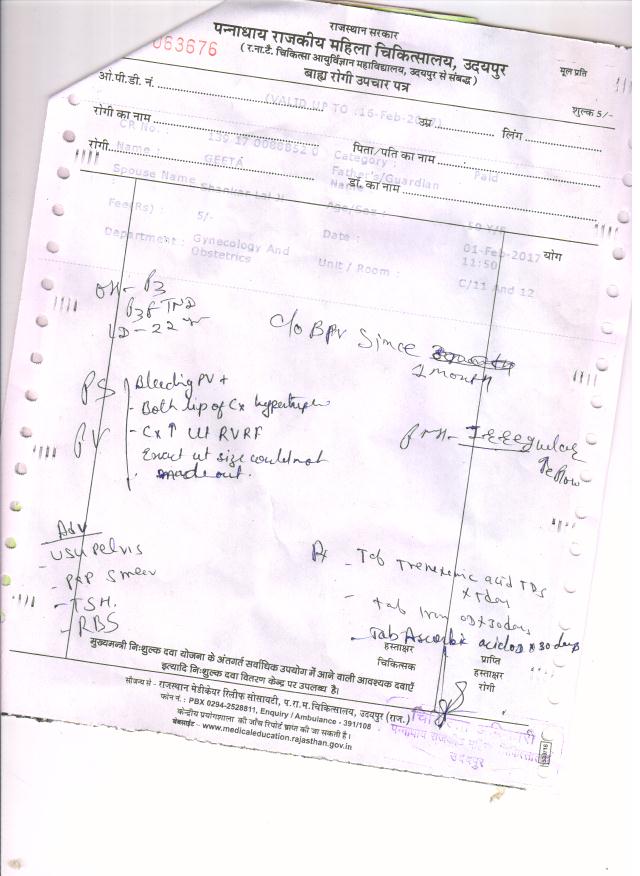 राजस्थान सरकार
063676
पन्नाधाय राजकीय महिला चिकित्सालय, उदयपुर
( र.ना.टै. चिकित्सा आयुर्विज्ञान महाविद्यालय, उदयपुर से संबद्ध )
बाह्य रोगी उपचार पत्र
मूल प्रति
शुल्क 5/-
ओ.पी.डी. नं.
(VALID UP TO :16-Feb-2017)
उम्र
लिंग
रोगी का नाम
पिता/पति का नाम
CR No. :
Category :
Paid
रोगी
Name :
GEETA
Father's/Guardian
Name
डॉ. का नाम
Spouse Name
Age/Sex :
Fee(Rs) :
5/-
Date :
01-Feb-2017
11:50
योग
Department :
Gynecology And
Obstetrics
Unit / Room :
C/11 And 12
OH- P3
P3 FTND
LD - 22 yr
C/o BPV Since
1 month
PS
Bleeding PV +
- Both lip of Cx
PV
- Cx ↑ Ut RVRF
Exact ut size could not
made out.
Irregular
↑eflow
Adv
- USG Pelvis
- PAP Smear
- TSH.
- RBS
Rx - Tab Tranexemic acid TDS
x 7 days
- tab Iron OD x 30 days
- Tab Ascorbic acid OD x 30 days
मुख्यमन्त्री निःशुल्क दवा योजना के अंतर्गत सर्वाधिक उपयोग में आने वाली आवश्यक दवाएँ
इत्यादि निःशुल्क दवा वितरण केन्द्र पर उपलब्ध है।
हस्ताक्षर
चिकित्सक
प्राप्ति
हस्ताक्षर
रोगी
सौजन्य से - राजस्थान मेडीकेयर रिलीफ सोसायटी, प.रा.म.चिकित्सालय, उदयपुर (राज.)
फोन नं. : PBX 0294-2528811, Enquiry / Ambulance - 391/108
केन्द्रीय प्रयोगशाला की जाँच रिपोर्ट प्राप्त की जा सकती है।
वेबसाईट - www.medicaleducation.rajasthan.gov.in
चिकित्सा अधिकारी
पन्नाधाय राजकीय महिला चिकित्सालय
उदयपुर